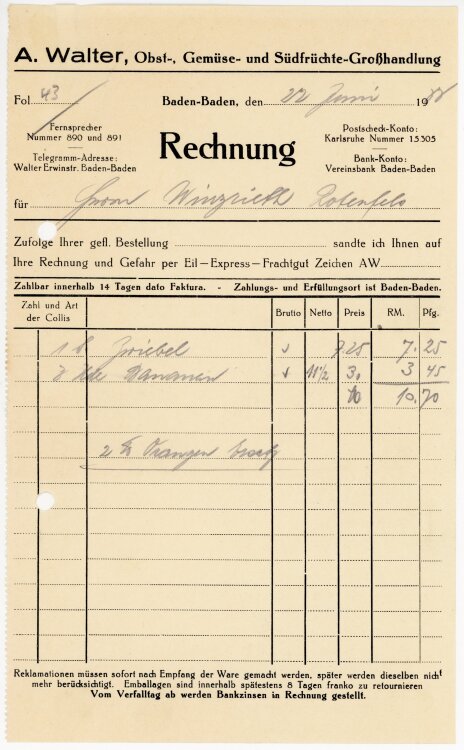 A. Walter, Obst-, Gemüse- und Südfrüchte-Großhandlung
Fol. 43
Baden-Baden, den 22 Juni 19
Fernsprecher
Nummer 890 und 891
Telegramm-Adresse:
Walter Erwinstr. Baden-Baden
Rechnung
Postscheck-Konto:
Karlsruhe Nummer 15305
Bank-Konto:
Vereinsbank Baden-Baden
für Rotenfels
Zufolge Ihrer gefl. Bestellung sandte ich Ihnen auf
Ihre Rechnung und Gefahr per Eil—Express—Frachtgut Zeichen AW.
Zahlbar innerhalb 14 Tagen dato Faktura. - Zahlungs- und Erfüllungsort ist Baden-Baden.
Zahl und Art der Collis Brutto Netto Preis RM. Pfg.
Zwiebel 7.25 7.25
Bananen 11½ 3 45
10.70
2 Orangen
Reklamationen müssen sofort nach Empfang der Ware gemacht werden, später werden dieselben nicht
mehr berücksichtigt. Emballagen sind innerhalb spätestens 8 Tagen franko zu retournieren
Vom Verfalltag ab werden Bankzinsen in Rechnung gestellt.